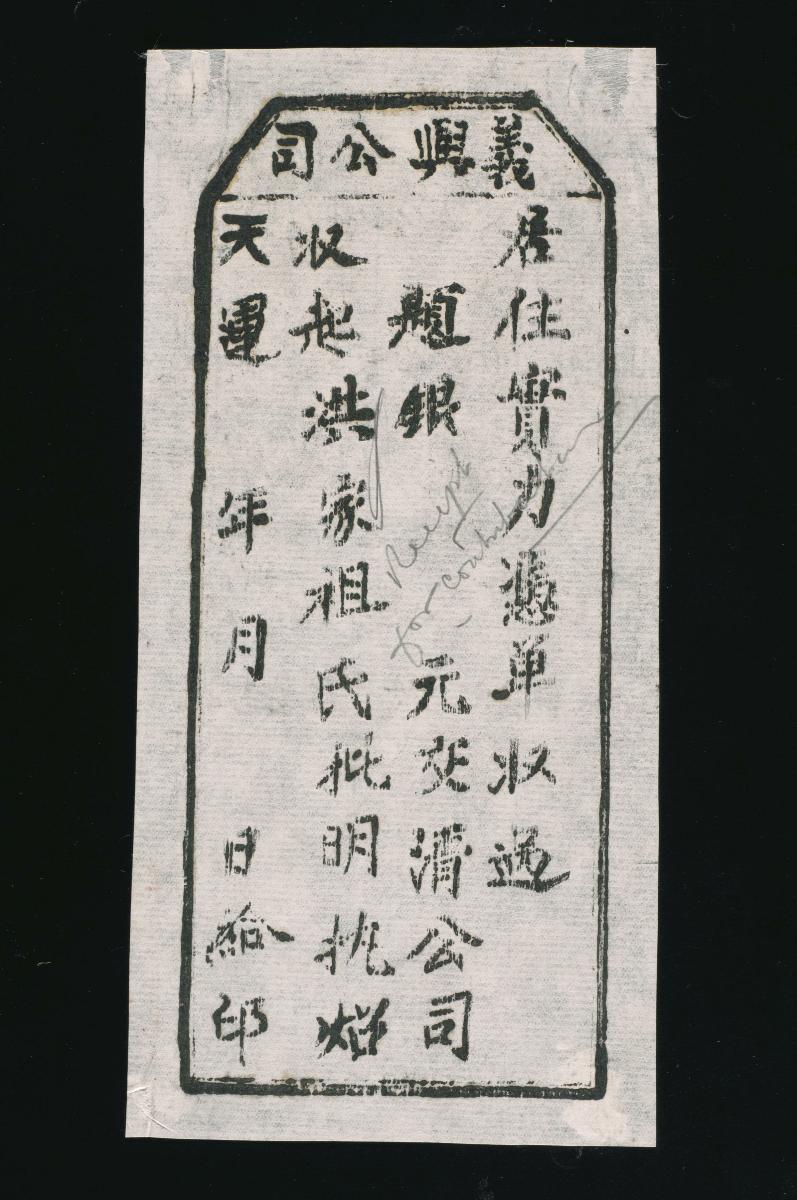 義興公司
居住實力憑單收過
題銀 元交清公司
收起洪家祖氏批明执炤
天運 年 月 日給印
Receipt
for contribution